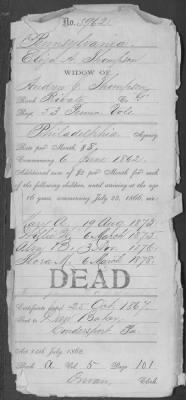 No. 5962
Pennsylvania.
Eliza A. Thompson
WIDOW OF
Andrew J. Thompson
Rank Private Co.
Regt. 53 Penna. Vols.
Philadelphia Agency
Rate per Month $8,
Commencing 6 June 1862.
Additional sum of $2 per Month for each
of the following children, until arriving at the age
of 16 years, commencing July 25, 1866, viz:
A. 19 Aug 1873.
6 March 1875.
3 Nov 1876.
Flora M. 6 March 1878.
DEAD
Certificate dated 25 Oct. 1867
Sent to
Coudersport Pa
Act 14th July 1862.
Book A Vol. 5 Page 101.
Clerk.